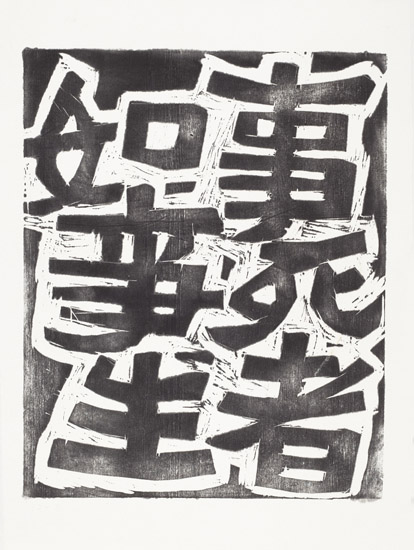 事死者
如事生